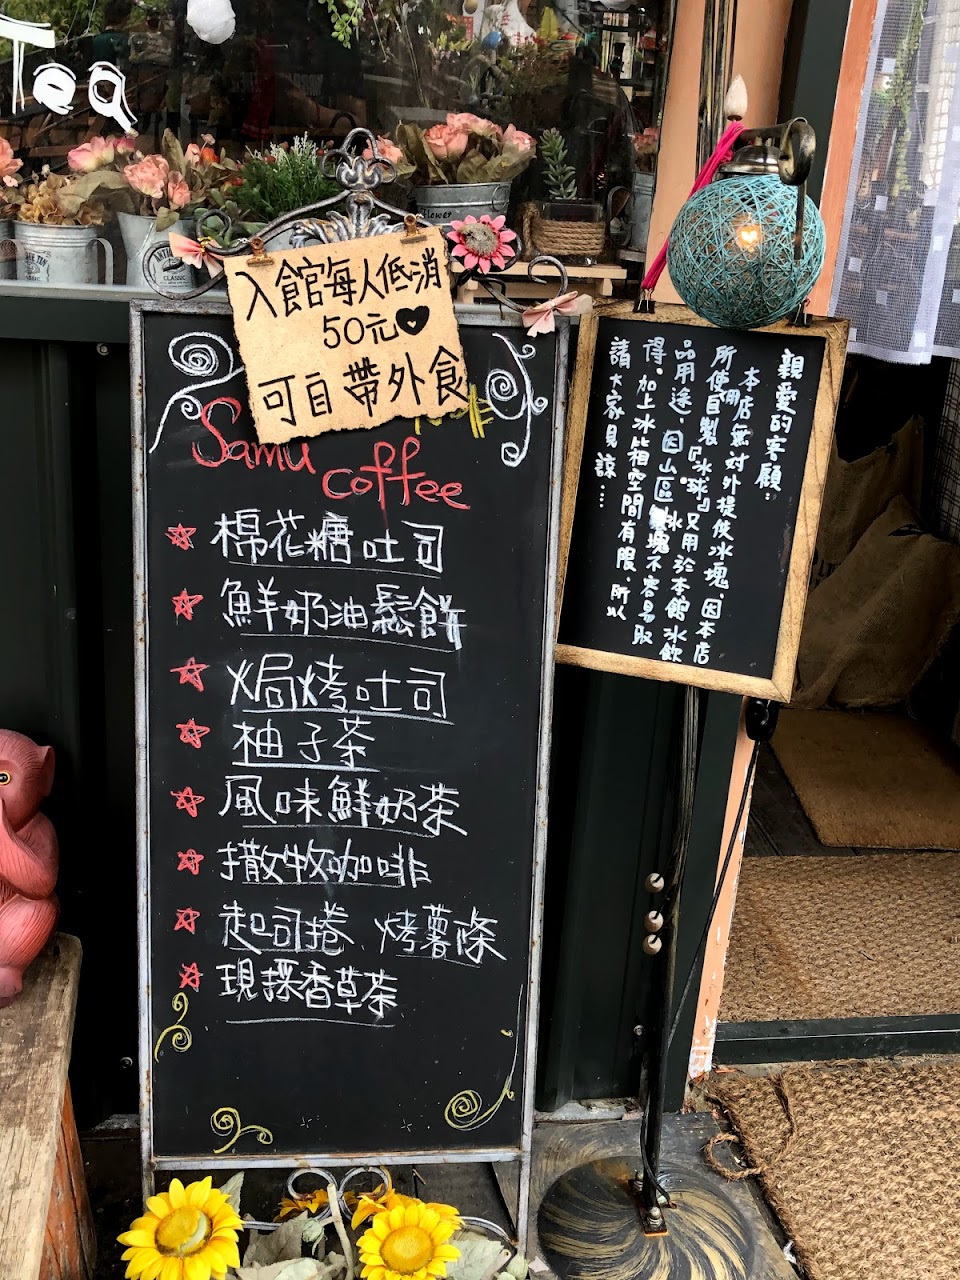 Tea
flower
CLASSIC
入館每人低消
50元
可自帶外食
Samu
coffee
棉花糖吐司
鮮奶油鬆餅
焗烤吐司
柚子茶
風味鮮奶茶
撒牧咖啡
起司捲、烤薯條
現採香草茶
親愛的客顧：
本店無對外提使冰塊、因本店
所使用自製『冰球』又用於本館冰飲
品用途、因山區冰塊不容易取
得、加上冰箱空間有限、所以
請大家見諒…